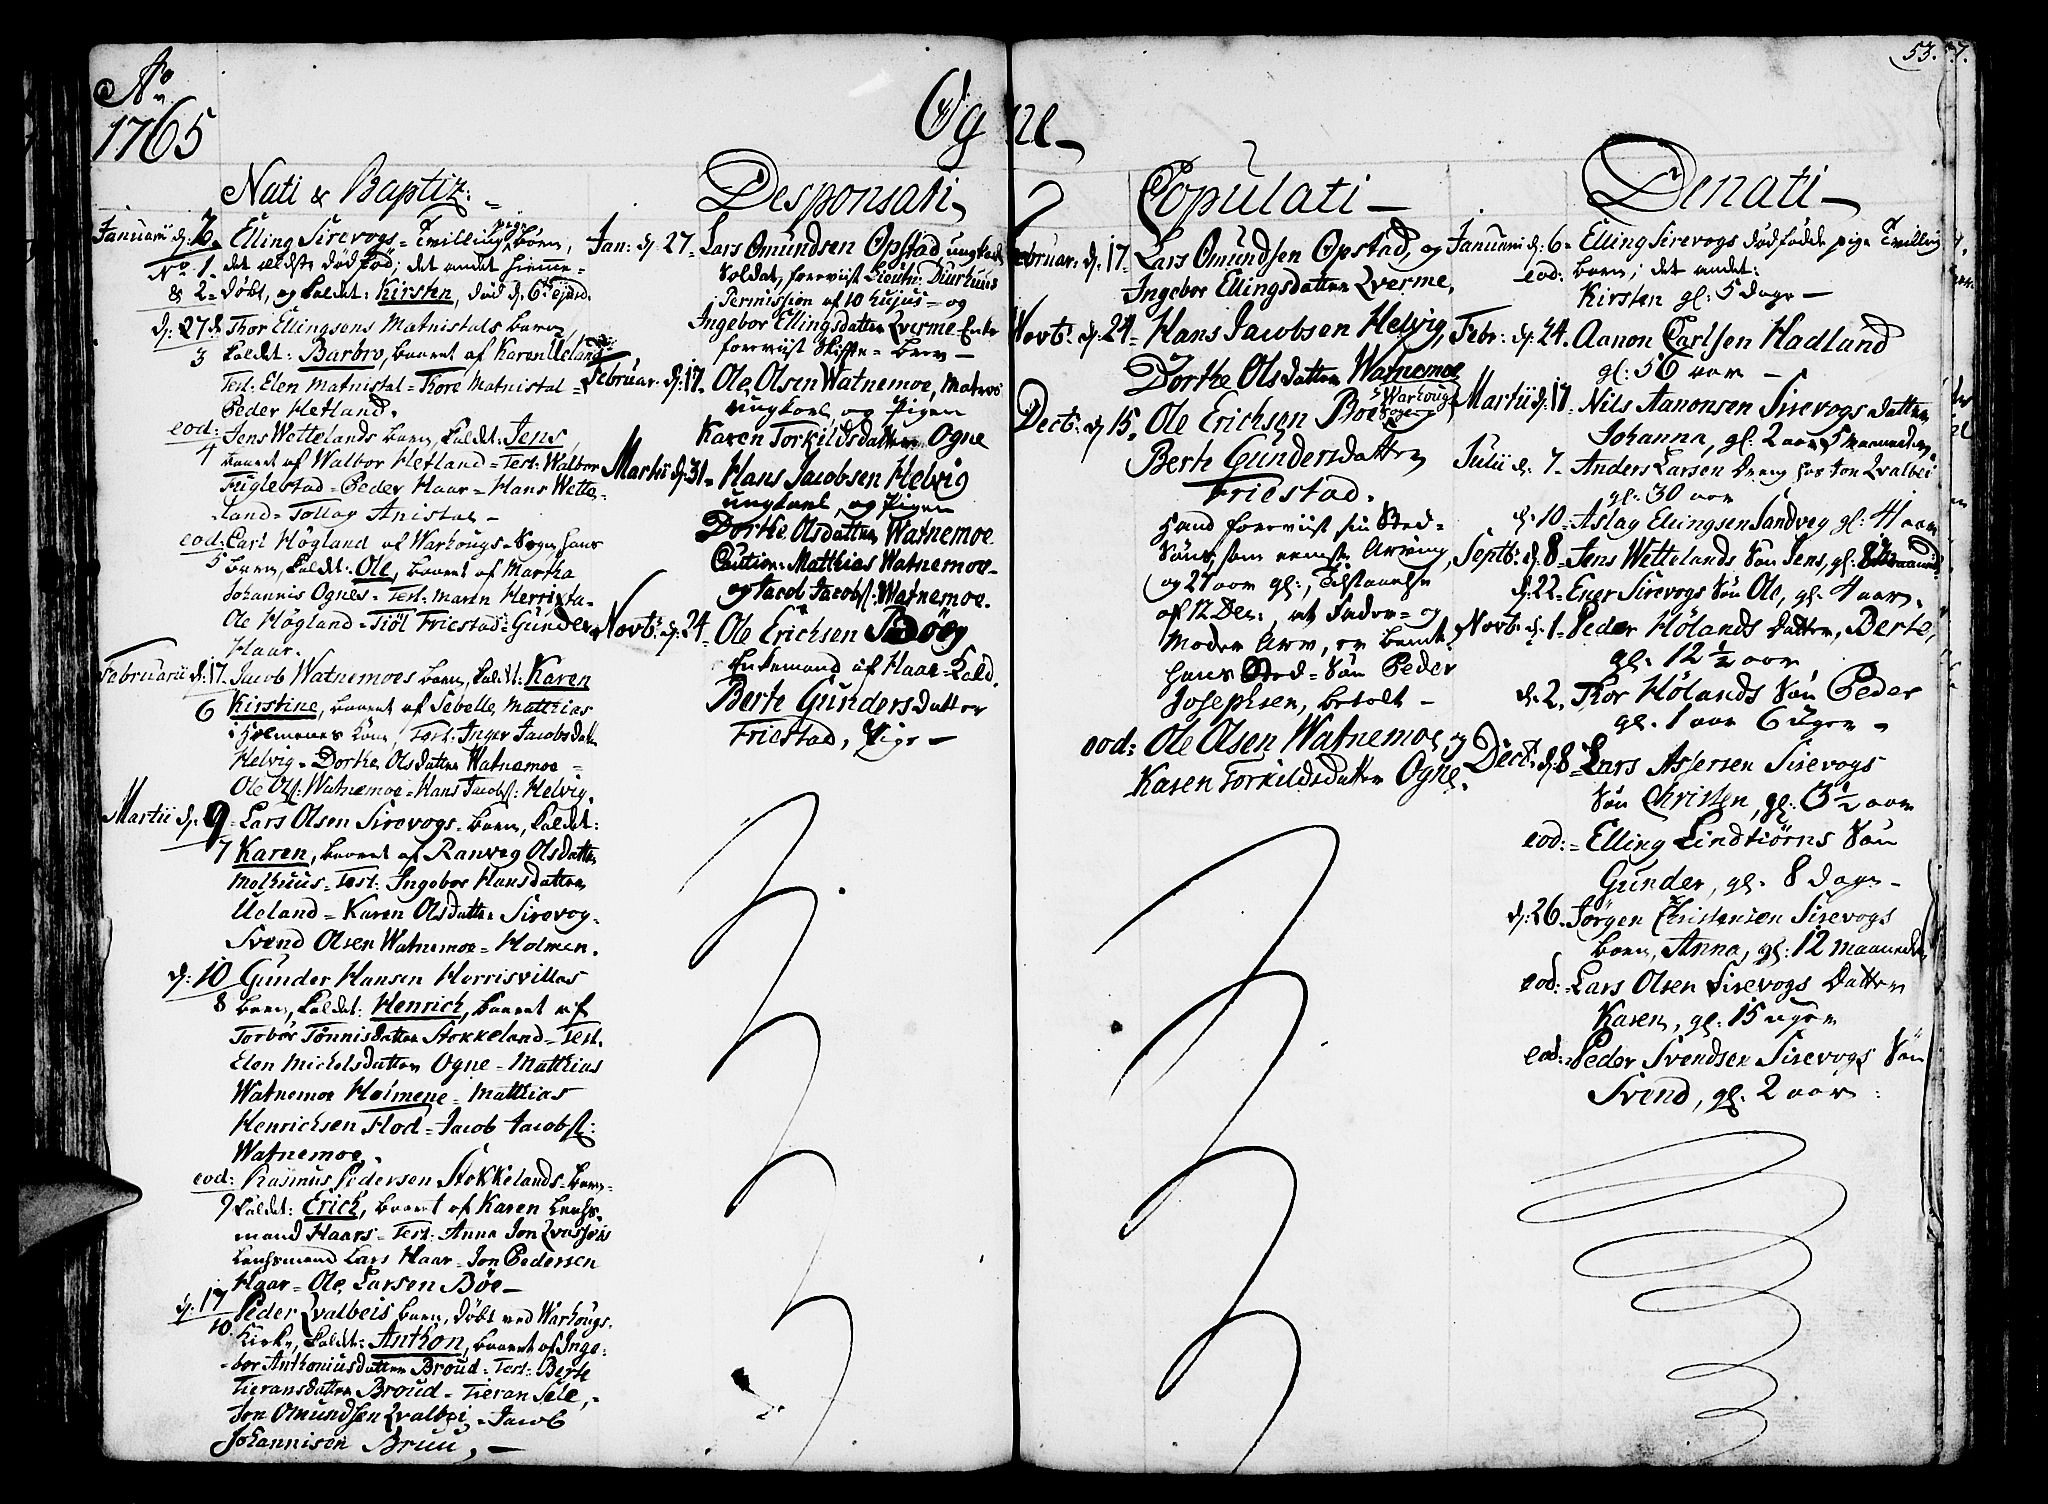 Ao
1765
Ogne
53.
Nati & Baptiz:
Januarii d: 2. Elling Sirevogs Tvilling pige Børn,
No 1. det eldste død fød; det andet hiemme-
& 2 døbt, og kaldet: Kirsten, død d. 6 ejusd.
d: 27 Thor Ellingsens Matnistals barn,
3 kaldet: Barbro, baaret af Karen Ueland
Test: Elen Matnistal = Thore Matnistal =
Peder Hetland.
eod: Jens Wettelands barn, kaldet: Jens,
4 baaret af Walbor Hetland = Test: Walbor
Fuglestad = Peder Haar = Hans Wette-
land = Tollag Anistal –
eod: Carl Högland af Warhougs Sogn hans
5 barn, kaldet: Ole, baaret af Martha
Johannis Ognes = Test: Maren Herrista-
Ole Högland = Tiöl Friestad = Gunder
Haar.
Februarii d: 17. Jacob Watnemoes barn, kaldt: Karen
6 Kirstine, baaret af Sebelle Matthias
i Holmenes Kone, Test: Inger Jacobsdatt
Helvig = Dorthe Olsdatter Watnemoe =
Ole Ols: Watnemoe = Hans Jacobs: Helvig.
Martii d: 9 Lars Olsen Sirevogs barn, kaldet:
7 Karen, baaret af Ranveg Olsdatter
Molhuus = Test: Ingebor Hansdatter
Ueland = Karen Olsdatter Sirevog =
Svend Olsen Watnemoe = Holmen.
d: 10 Gunder Hansen Herrisvillas
8 barn, kaldet: Henrich, baaret af
Torbör Tönnisdatter Stokkeland = Test.
Elen Michelsdatter Ogne = Matthias
Watnemoe Holmene = Matthias
Henrichsen Flod = Jacob Jacobs:
Watnemoe.
eod: Rasmus Pedersen Stokkelands barn
9 kaldet: Erich, baaret af Karen Lens-
mand Haars = Test: Anna Jon Qvasheis
Lensmand Lars Haar = Jon Pedersen
Haar = Ole Larsen Böe –
d: 17 Peder Qvalbeis barn, døbt ved Warhougs
10. Kirke, kaldet: Anthon, baaret af Inge-
bor Anthoniusdatter Broud = Test: Berte
Tieransdatter Broud = Tieran Sele, =
Jon Omundsen Qvalbei = Jacob
Johannisen Bruu, –
Desponsati
Jan: d: 27. Lars Omundsen Opstad ungkarl
Soldat, foreviist Lieutn: Diurhuus
Permission af 10 hujus = og
Ingebor Ellingsdatter Qverme Enke
foreviist Skifte = brev –
Februar: d: 17. Ole Olsen Watnemoe, Matros
ungkarl og Pigen
Karen Torkildsdatter Ogne
Martii d: 31. Hans Jacobsen Helvig
ungkarl, og Pigen
Dorthe Olsdatter Watnemoe
Caution: Matthias Watnemoe
og Jacob Jacobs: Watnemoe.
Novbr d: 24. Ole Erichsen
Enkemand af Haar = Kald
Berte Gundersdatter
Friestad, Pige –
Copulati –
Februar: d: 17. Lars Omundsen Opstad, og
Ingebor Ellingsdatter Qverme.
Novbr: d: 24. Hans Jacobsen Helvig,
Dorthe Olsdatter Watnemoe
Decbr: d: 15. Ole Erichsen Boe Warhougs Sogn og
Berte Gundersdatter
Friestad.
Hand foreviist sin Sted-
Söns, som eeniste Arving
og 27 aar gl:, Tilstaaelse
af 12 Dec:, at Fader = og
Moder Arv, er bemt:
hans Sted = Sön Peder
Josephsen, betalt –
eod: Ole Olsen Watnemoe og
Karen Torkildsdatter Ogne.
Denati –
Januarii d: 6. Elling Sirevogs dødfødde pige Tvilling
eod: barn; det andet:
Kirsten gl: 5 dage –
Febr: d: 24. Aanon Carlsen Hadland
gl: 56 aar –
Martii d: 17. Nils Aanonsen Sirevogs datter
Johanna, gl: 2 aar 5 maaneder.
Julii d: 7. Anders Larsen Dreng hos Jon Qvalbei
gl: 30 aar
d: 10. Aslag Ellingsen Sandveg gl: 41 aar
Septbr: d: 8. Jens Wettelands Sön Jens, gl: 8 maaneder
d: 22. Ener Sirevogs Sön Ole, gl. 4 aar.
Novbr: d: 1. Peder Hölands Datter, Berte,
gl: 12 ½ aar
d: 2. Thor Hölands Sön Peder
gl. 1 aar 6 uger –
Decbr: d: 8. Lars Assersen Sirevogs
Sön Christen, gl: 3 ½ aar
eod: Elling Lindtiörns Sön
Gunder, gl. 8 dage –
d: 26. Jörgen Christensen Sirevogs
barn, Anna, gl: 12 maaneder
eod: Lars Olsen Sirevogs Datter
Karen, gl: 15 uger
eod: Peder Svendsen Sirevogs Sön
Svend, gl. 2 aar.